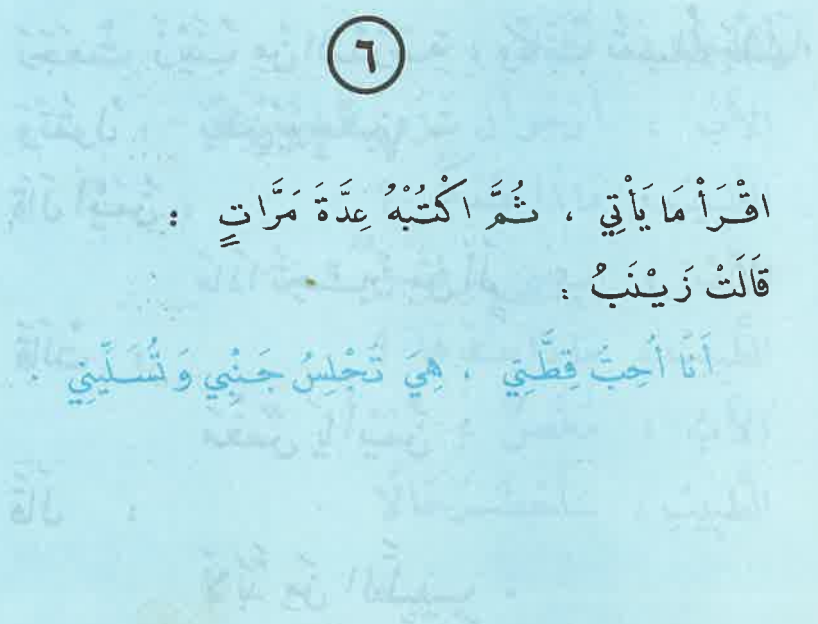 ٦
اقْرَأْ مَا يَأْتِي ، ثُمَّ اكْتُبْهُ عِدَّةَ مَرَّاتٍ :
قَالَتْ زَيْنَبُ :
أَنَا أُحِبُّ قِطَّتِي ، هِيَ تَجْلِسُ جَنْبِي وَتُسَلِّينِي .